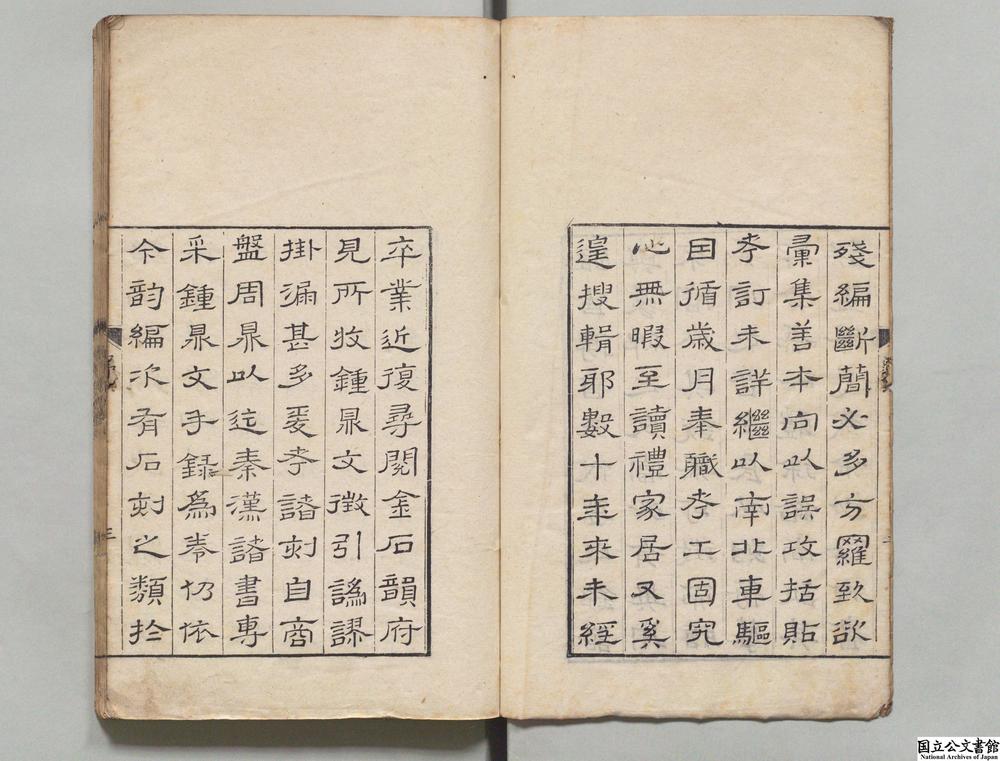 殘編斷簡必多方羅致欲
彙集善本向以誤攻括貼
考訂未詳繼以南北車驅
因循歲月奉職考工固究
心無暇至讀禮家居又奚
遑搜輯耶數十年來未經
卒業近復尋閱金石韻府
見所收鍾鼎文徵引譌謬
掛漏甚多爰考諸刻自商
盤周鼎以迄秦漢諸書專
采鍾鼎文手錄爲卷仍依
今韵編次有石刻之類於
序
三
国立公文書館
National Archives of Japan